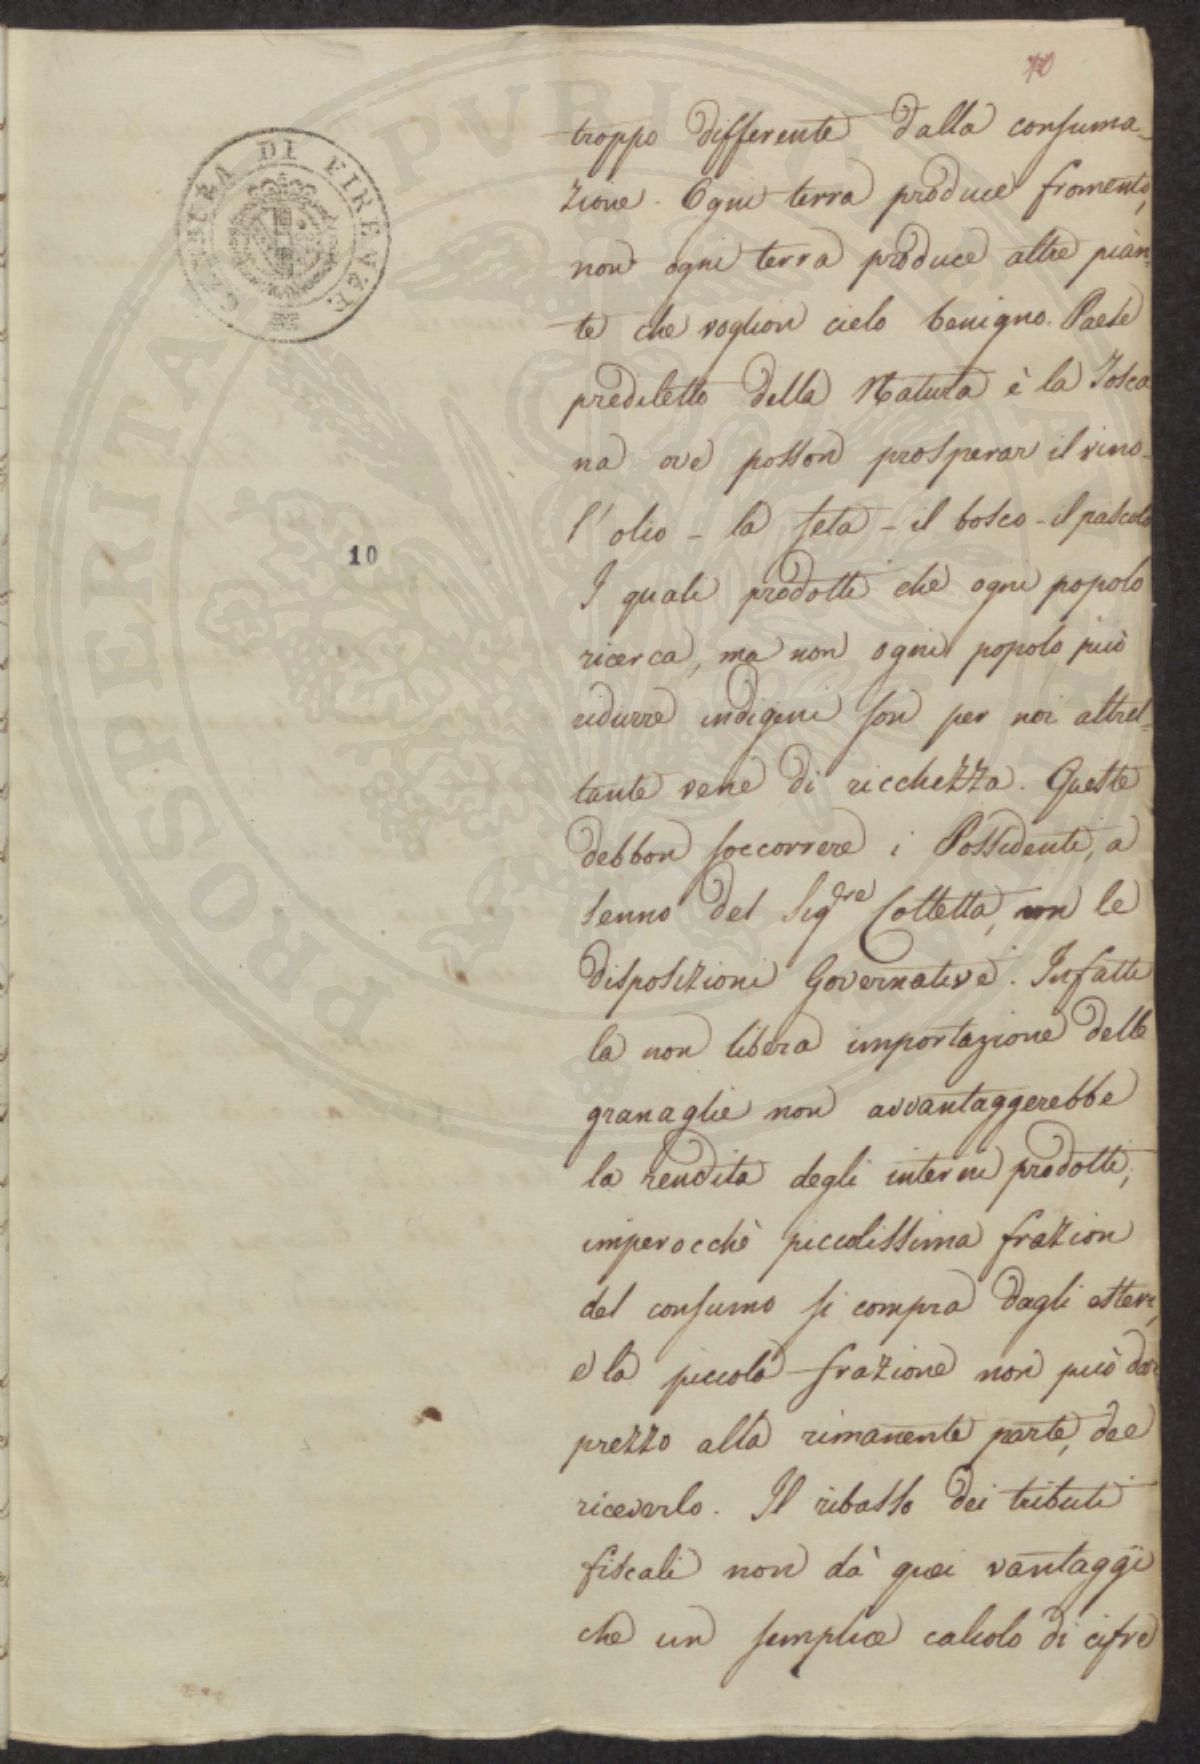 10
troppo differente dalla consuma-
zione. Ogni terra produce fromento,
non ogni terra produce altre pian-
te che voglion cielo benigno. Paese
prediletto della Natura è la Tosca
na ove posson prosperar il vino-
l'olio - la seta - il bosco - il pascolo
I quali prodotti che ogni popolo
ricerca, ma non ogni popolo può
ridurre indigeni son per noi altret-
tante vene di ricchezza. Queste
debbon soccorrere i Possidenti, a
senno del Sigre Colletta, non le
disposizioni Governative. Infatti
la non libera importazione delle
granaglie non avvantaggerebbe
la rendita degli interni prodotti,
imperocchè piccolissima frazion
del consumo si compra dagli esteri,
e la piccola frazione non può dar
prezzo alla rimanente parte, dee
riceverlo. Il ribasso dei tributi
fiscali non dà quei vantaggi
che un semplice calcolo di cifre
CENSURA DI FIRENZE
10
PROSPERITATI PUBLICAE